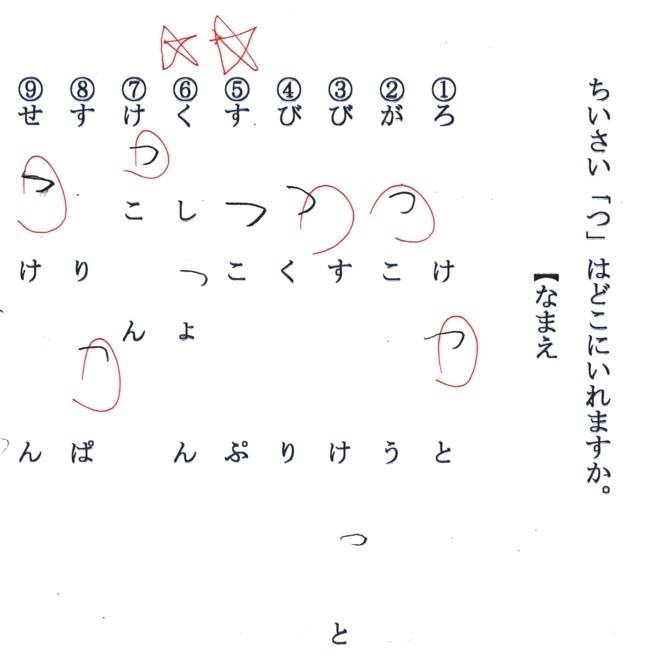 ちいさい「つ」はどこにいれますか。
【なまえ
①ろけつと
②がつこう
③びすけつと
④びつくり
⑤すつこぷ
⑥くしつょん
⑦けつこん
⑧すりつぱ
⑨せつけん